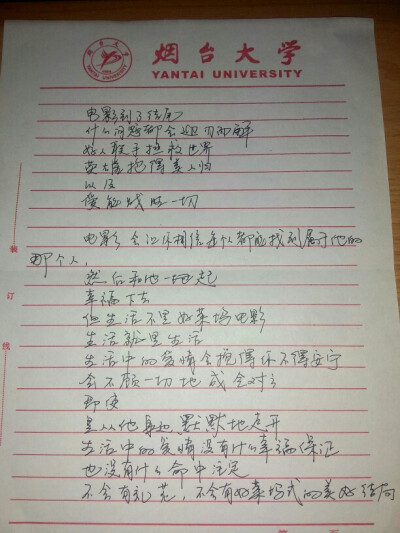 烟台大学
YANTAI UNIVERSITY
电影到了结尾
什么问题都会迎刃而解
好人联手拯救世界
英雄抱得美人归
以及
爱能战胜一切
电影会让你相信每个人都能找到属于他的
那个人,
然后和他一起
幸福下去
但生活不是好莱坞电影
生活就是生活
生活中的爱情会搅得你不得安宁
会不顾一切地成全对方
即使
是从他身边默默地走开
生活中的爱情没有什么幸福保证
也没有什么命中注定
不会有礼花,不会有好莱坞式的美好结局
装
订
线